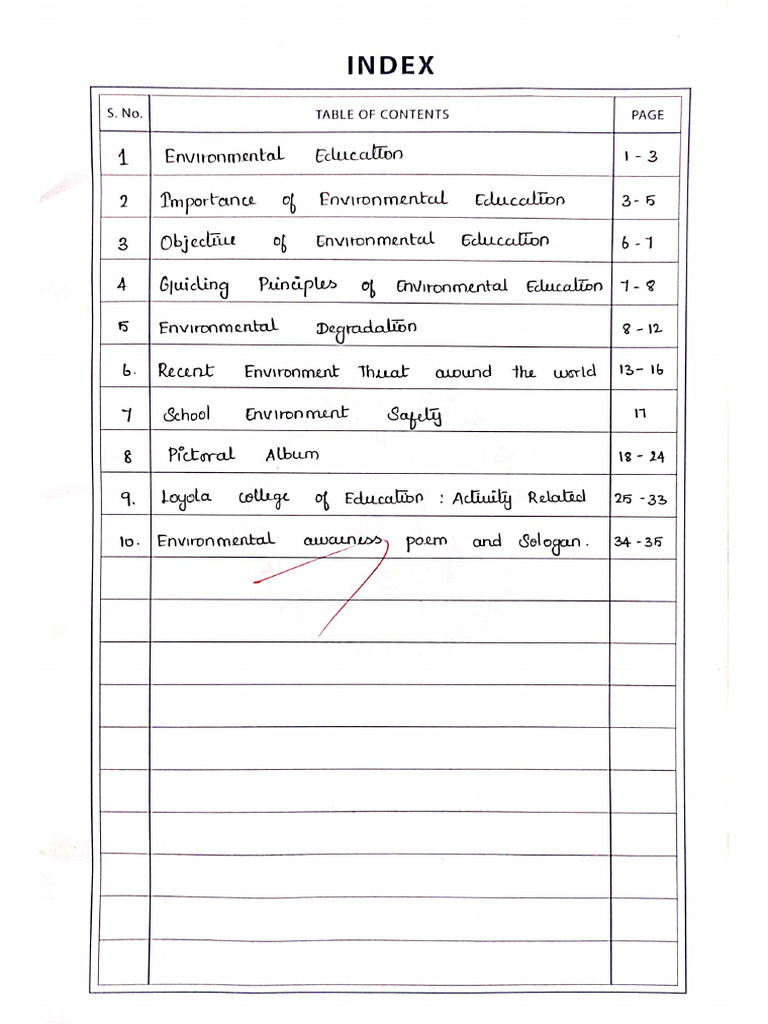 INDEX
S. No. TABLE OF CONTENTS PAGE
1 Environmental Education 1 - 3
2 Importance of Environmental Education 3 - 5
3 Objective of Environmental Education 6 - 7
4 Guiding Principles of Environmental Education 7 - 8
5 Environmental Degradation 8 - 12
6. Recent Environment Threat around the world 13 - 16
7 School Environment Safety 17
8 Pictoral Album 18 - 24
9. Loyola college of Education : Activity Related 25 - 33
10. Environmental awarness, poem and Sologan. 34 - 35